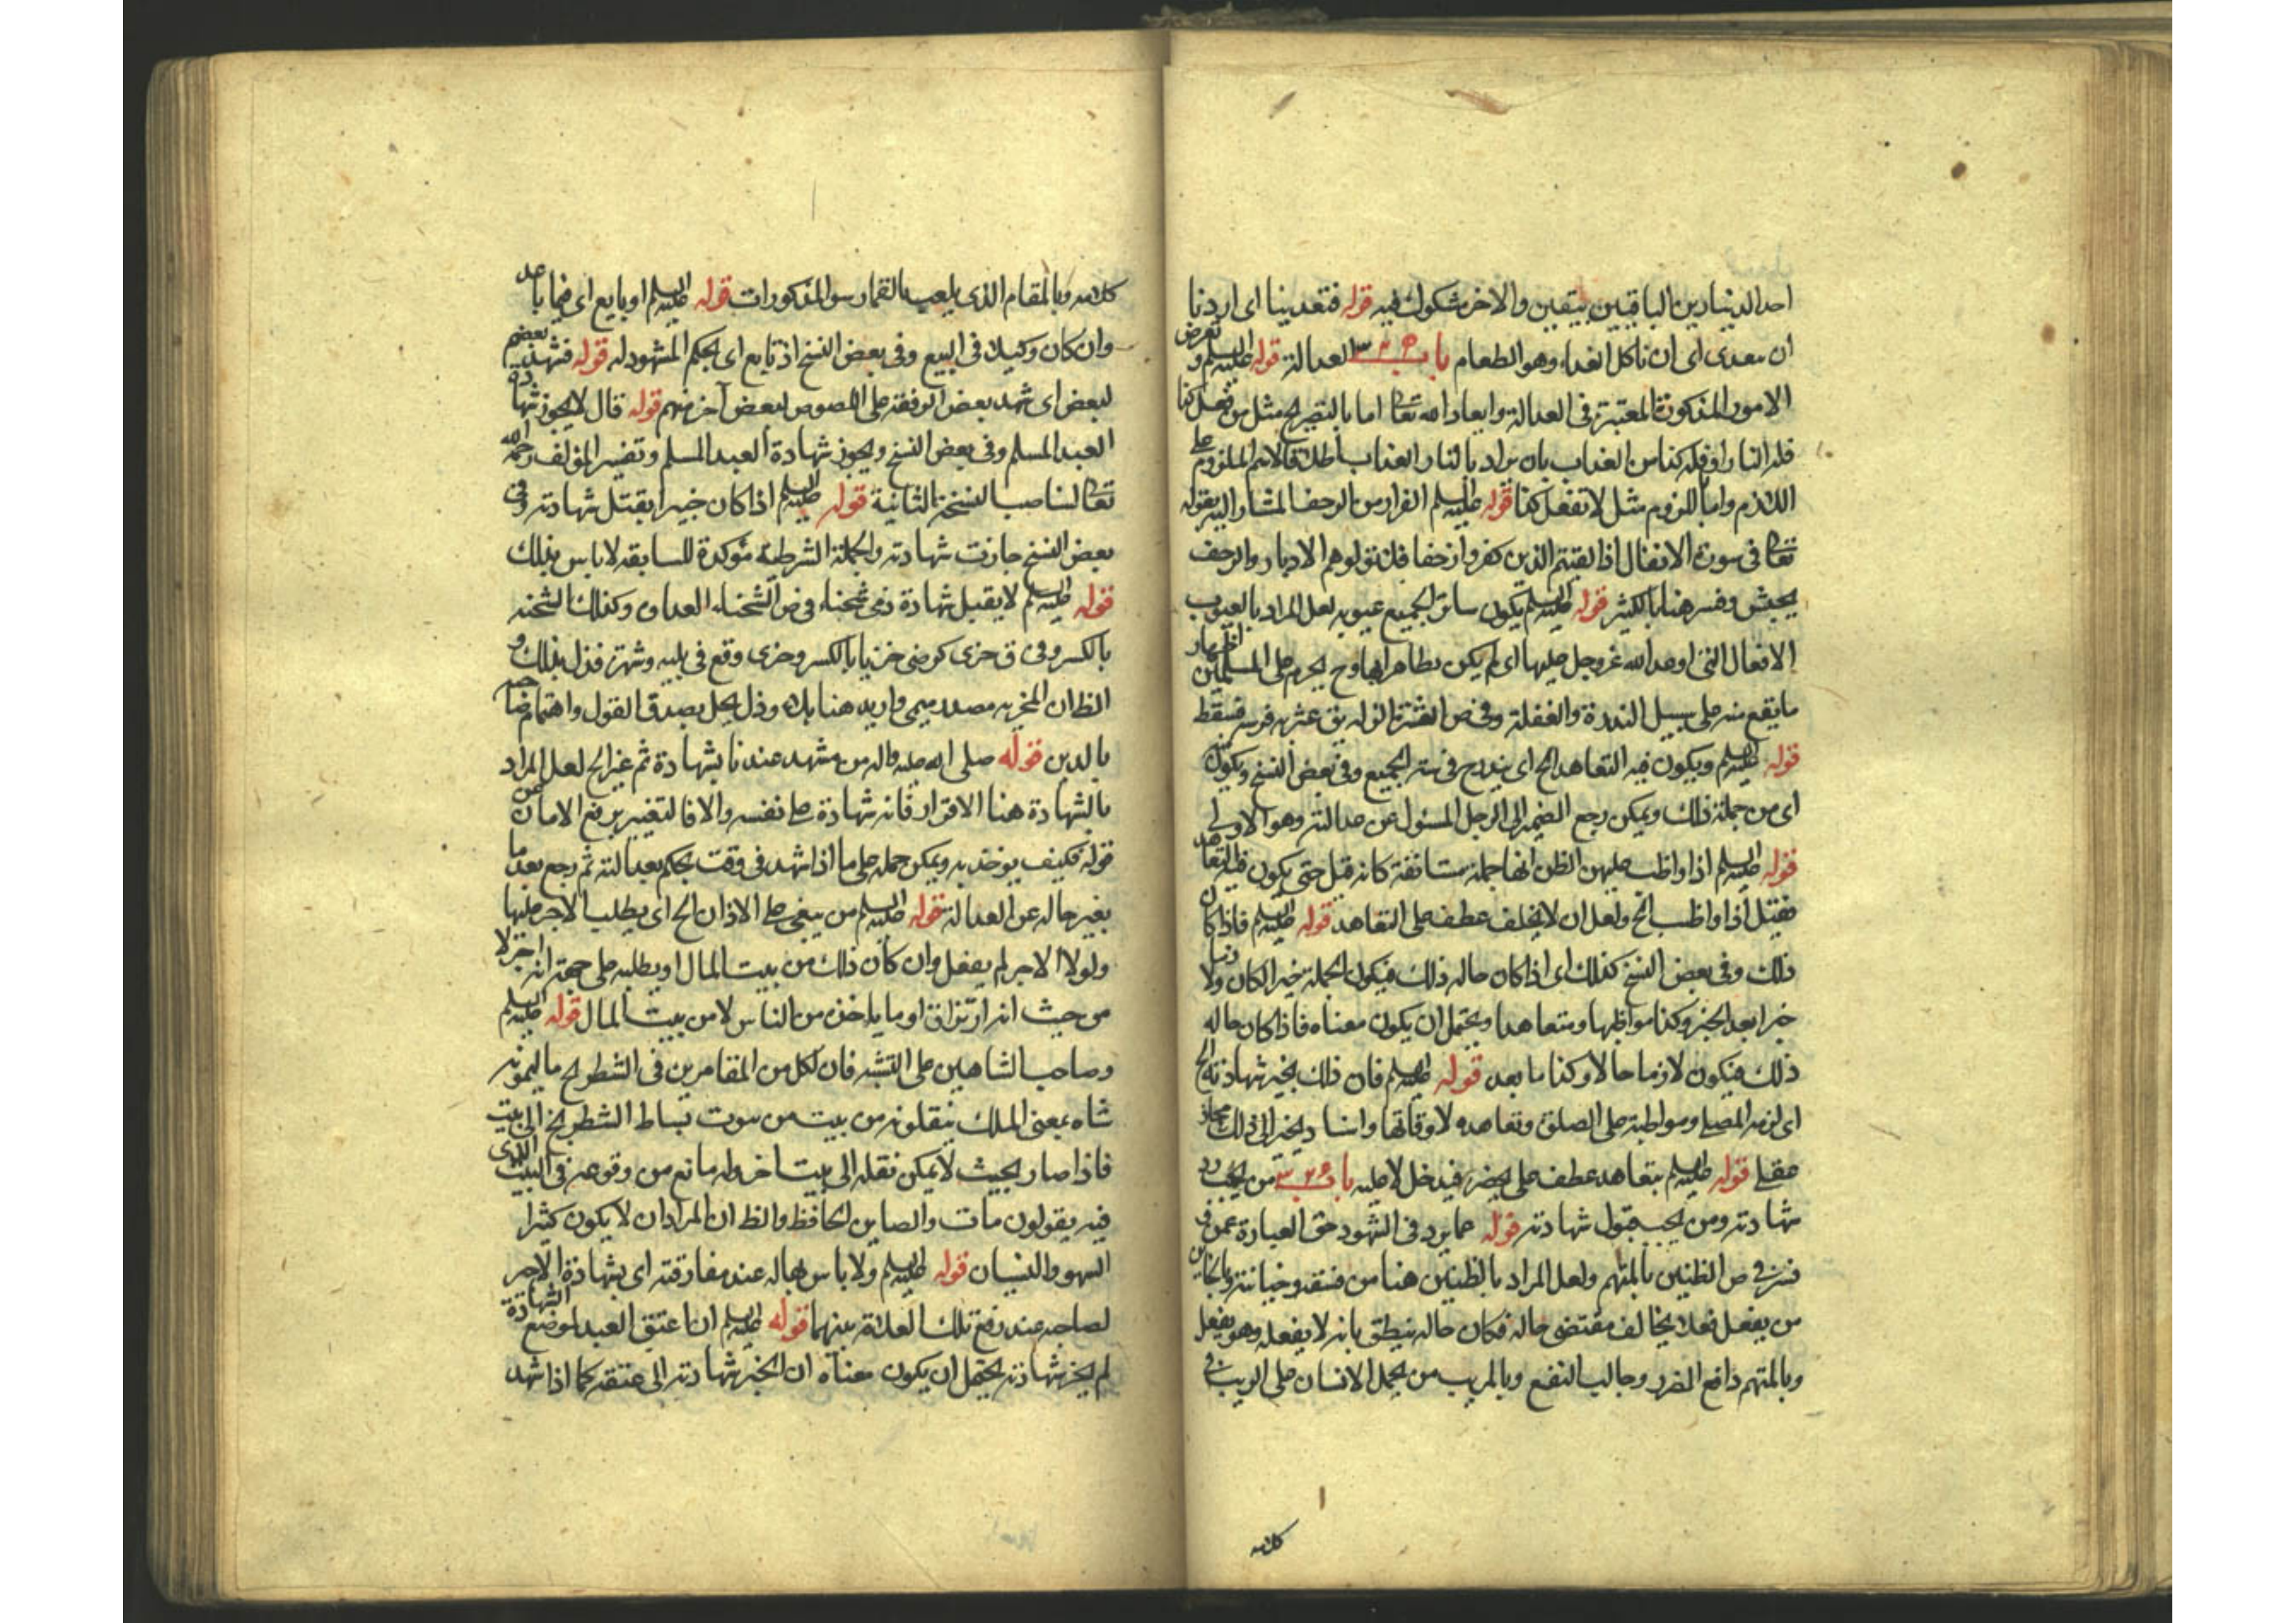 احد الدينارين الباقيين بيقين والاخر مشكوك فيه قوله فتغدينا اى اردنا
ان نتغدى اى ان ناكل الغداء وهو الطعام باب العدالة قوله عليه السلم و تعرض
الامور المذكورة المعتبرة فى العدالة وايعاد الله تعالى اما بالتصريح مثل من فعل كذا
فله النار او فله كذا من العذاب بان يراد بالنار العذاب اطلاقا لاسم الملزوم على
اللازم واما باللزوم مثل لا تفعل كذا قوله عليه السلم الفرار من الزحف المشار اليه بقوله
تعالى فى سورة الانفال اذا لقيتم الذين كفروا زحفا فلا تولوهم الادبار والزحف
يجيش وفسر هنا بالكثير قوله عليه السلم يكون ساترا لجميع عيوبه لعل المراد بالعيوب
الافعال التى اوعد الله عز وجل عليها اى لم يكن متظاهرا بها وح يحرم على المسلمين اظهار
ما يقع منه على سبيل الندرة والغفلة وفى ص العثرة الزلة يق عثر به فرسه فسقط
قوله عليه السلم ويكون فيه التعاهد الخ اى يندرج فى ستر الجميع وفى بعض النسخ ويكون
اى من جملة ذلك ويمكن رجع الضمير الى الرجل المسئول عن عدالته وهو الاولى
قوله عليه السلم اذا واظب عليهن الظن انها جملة مستانفة كانه قيل حتى يكون فيه التعاهد
فقيل اذا واظب الخ ولعل ان لا يتخلف عطف على التعاهد قوله عليه السلم فاذا كان
ذلك وفى بعض النسخ كذلك اى اذا كان حاله ذلك فيكون الجملة خبرا لكان ولازما
خبرا بعد الخبر وكذا مواظبها ومتعاهدا ويحتمل ان يكون معناه فاذا كان حاله
ذلك فيكون لازما حالا وكذا ما بعد قوله عليه السلم فان ذلك يجيز شهادته الخ
اى لزمه المصلى ومواظبة على الصلوة وتعاهده لاوقاتها واسناد يجيز الى ذلك مجاز
عقلى قوله عليه السلم بتعاهد عطف على بحضر فيدخل لا عليه باب من يجب رد
شهادته ومن يجب قبول شهادته قوله عما يرد فى الشهود حق العبارة عمن فى
فسر فى ص الظنين بالمتهم ولعل المراد بالظنين هنا من فسقه وخيانته وبالخاين
من يفعل فعلا يخالف مقتضى حاله فكان حاله ينطق بانه لا يفعله وهو يفعل
وبالمتهم دافع الضرر وجالب النفع وبالمريب من يحمل الانسان على الريب فى
كلامه
كلامه وبالمقام الذى يلعب بالقمار سوى المذكورات قوله عليه السلم او بايع اى فيما باعه
وان كان وكيلا فى البيع وفى بعض النسخ اذ تابع اى لحكم المشهود له قوله فشهد بعضهم
لبعض اى شهد بعض الرفقة على اللصوص لبعض آخر منهم قوله قال لا يجوز شهادة
العبد المسلم وفى بعض النسخ ويجوز شهادة العبد المسلم وتفسير المؤلف رحمه الله
تعالى لناصب النسخة الثانية قوله عليه السلم اذا كان خيرا يقبل شهادته وفى
بعض النسخ جازت شهادته والجملة الشرطية مؤكدة للسابقة لا باس بذلك
قوله عليه السلم لا يقبل شهادة ذى شحناء فى ص الشحناء العداوة وكذلك الشحنة
بالكسر وفى ق خزى كرضى خزيا بالكسر وخزى وقع فى بلية وشهرة فذل بذلك و
الظ ان المخزية مصدر ميمى واريد هنا بلاء وذل يخل بصدق القول واهتمام صاحبه
بالدين قوله صلى الله عليه واله من شهد عندنا بشهادة ثم غير الخ لعل المراد
بالشهادة هنا الاقرار فانه شهادة على نفسه والا فالتغيير يرفع الامان عن
قوله فكيف يوخذ به ويمكن حمله على ما اذا شهد فى وقت يحكم بعدالته ثم رجع بعد ما
يغير حاله عن العدالة قوله عليه السلم من يبغى على الاذان الخ اى يطلب الاجر عليها
ولولا الاجر لم يفعل وان كان ذلك من بيت المال او يطلبه على جهة انه اجر لا
من حيث انه ارتزاق او ما ياخذه من الناس لا من بيت المال قوله عليه السلم
وصاحب الشاهين على التشبيه فان لكل من المقامرين فى الشطرنج ما يسمونه
شاه بمعنى الملك ينقلونه من بيت من بيوت بساط الشطرنج الى بيت
فاذا صار بحيث لا يمكن نقله الى بيت اخر وله مانع من وقوعه فى البيت الذى
فيه يقولون مات والصاين الحافظ والظ ان المراد ان لا يكون كثير
السهو والنسيان قوله عليه السلم ولا باس بها له عند مفارقته اى بشهادة الاجير
لصاحبه عند رفع تلك العلاقة بينهما قوله عليه السلم ان اعتق العبد لموضع الشهادة
لم يجز شهادته يحتمل ان يكون معناه ان لا يجيز شهادته الى عتقه كما اذا شهد